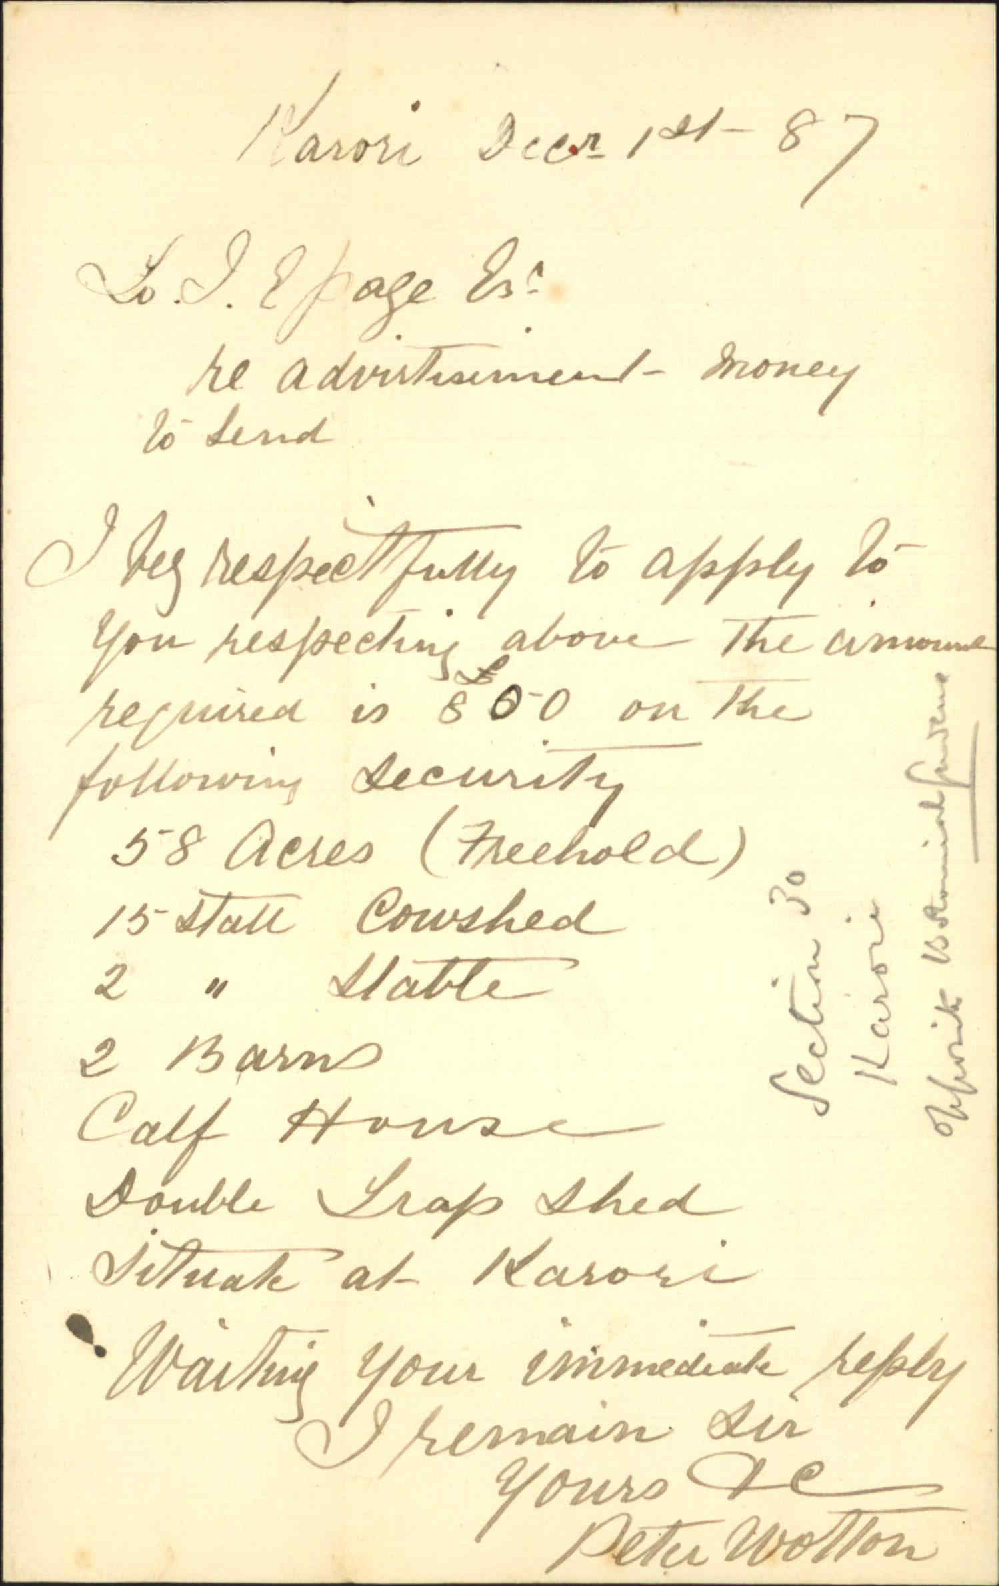 Karori Decr 1st 87
To. J. E Page Esr
re advertisement money
to Lend
I beg respectfully to apply to
you respecting above The amount
required is £850 on The
following security
58 Acres (Freehold)
15 Stall Cowshed
2 " Stable
2 Barns
Calf House
Double Trap Shed
Situate at Karori
Waiting your immediate reply
I remain Sir
Yours &c
Peter Wotton
Section 30
Karori
opposite Botanical Gardens